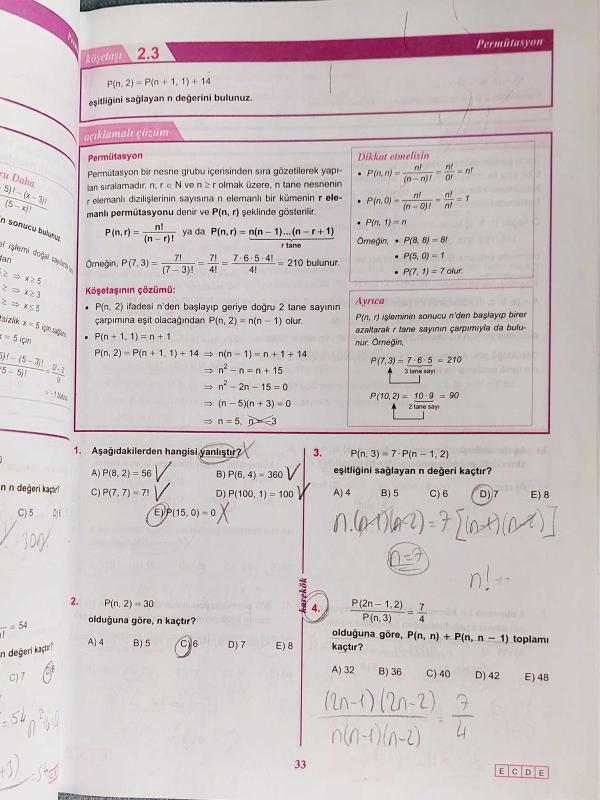 köşetaşı 2.3
Permütasyon
P(n, 2) = P(n + 1, 1) + 14
eşitliğini sağlayan n değerini bulunuz.
açıklamalı çözüm
Permütasyon
Permütasyon bir nesne grubu içerisinden sıra gözetilerek yapı-
lan sıralamadır. n, r ∈ N ve n ≥ r olmak üzere, n tane nesnenin
r elemanlı dizilişlerinin sayısına n elemanlı bir kümenin r ele-
manlı permütasyonu denir ve P(n, r) şeklinde gösterilir.
P(n, r) = n!/(n – r)! ya da P(n, r) = n(n – 1)...(n – r + 1)
r tane
Örneğin, P(7, 3) = 7!/(7 – 3)! = 7!/4! = 7·6·5·4!/4! = 210 bulunur.
Köşetaşının çözümü:
• P(n, 2) ifadesi n'den başlayıp geriye doğru 2 tane sayının
çarpımına eşit olacağından P(n, 2) = n(n – 1) olur.
• P(n + 1, 1) = n + 1
P(n, 2) = P(n + 1, 1) + 14 ⇒ n(n – 1) = n + 1 + 14
⇒ n² – n = n + 15
⇒ n² – 2n – 15 = 0
⇒ (n – 5)(n + 3) = 0
⇒ n = 5, n = –3
Dikkat etmelisin
• P(n, n) = n!/(n – n)! = n!/0! = n!
• P(n, 0) = n!/(n – 0)! = n!/n! = 1
• P(n, 1) = n
Örneğin, • P(8, 8) = 8!
• P(5, 0) = 1
• P(7, 1) = 7 olur.
Ayrıca
P(n, r) işleminin sonucu n'den başlayıp birer
azaltarak r tane sayının çarpımıyla da bulu-
nur. Örneğin,
P(7, 3) = 7·6·5 = 210
3 tane sayı
P(10, 2) = 10·9 = 90
2 tane sayı
1. Aşağıdakilerden hangisi yanlıştır?
A) P(8, 2) = 56 B) P(6, 4) = 360
C) P(7, 7) = 7! D) P(100, 1) = 100
E) P(15, 0) = 0
2. P(n, 2) = 30
olduğuna göre, n kaçtır?
A) 4 B) 5 C) 6 D) 7 E) 8
3. P(n, 3) = 7·P(n – 1, 2)
eşitliğini sağlayan n değeri kaçtır?
A) 4 B) 5 C) 6 D) 7 E) 8
n.(n-1)(n-2) = 7[(n-1)(n-2)]
n=7
n!
karekök
4. P(2n – 1, 2)/P(n, 3) = 7/4
olduğuna göre, P(n, n) + P(n, n – 1) toplamı
kaçtır?
A) 32 B) 36 C) 40 D) 42 E) 48
(2n-1)(2n-2)/n(n-1)(n-2) = 7/4
33
E C D E
ru Daha
5)! – (x – 3)!
(5 – x)!
n sonucu bulunuz.
⇒ x ≥ 5
⇒ x ≥ 3
⇒ x ≤ 5
x = 5 için
n değeri kaçtır?
C) 5
= 54
n değeri kaçtır?
C) 7